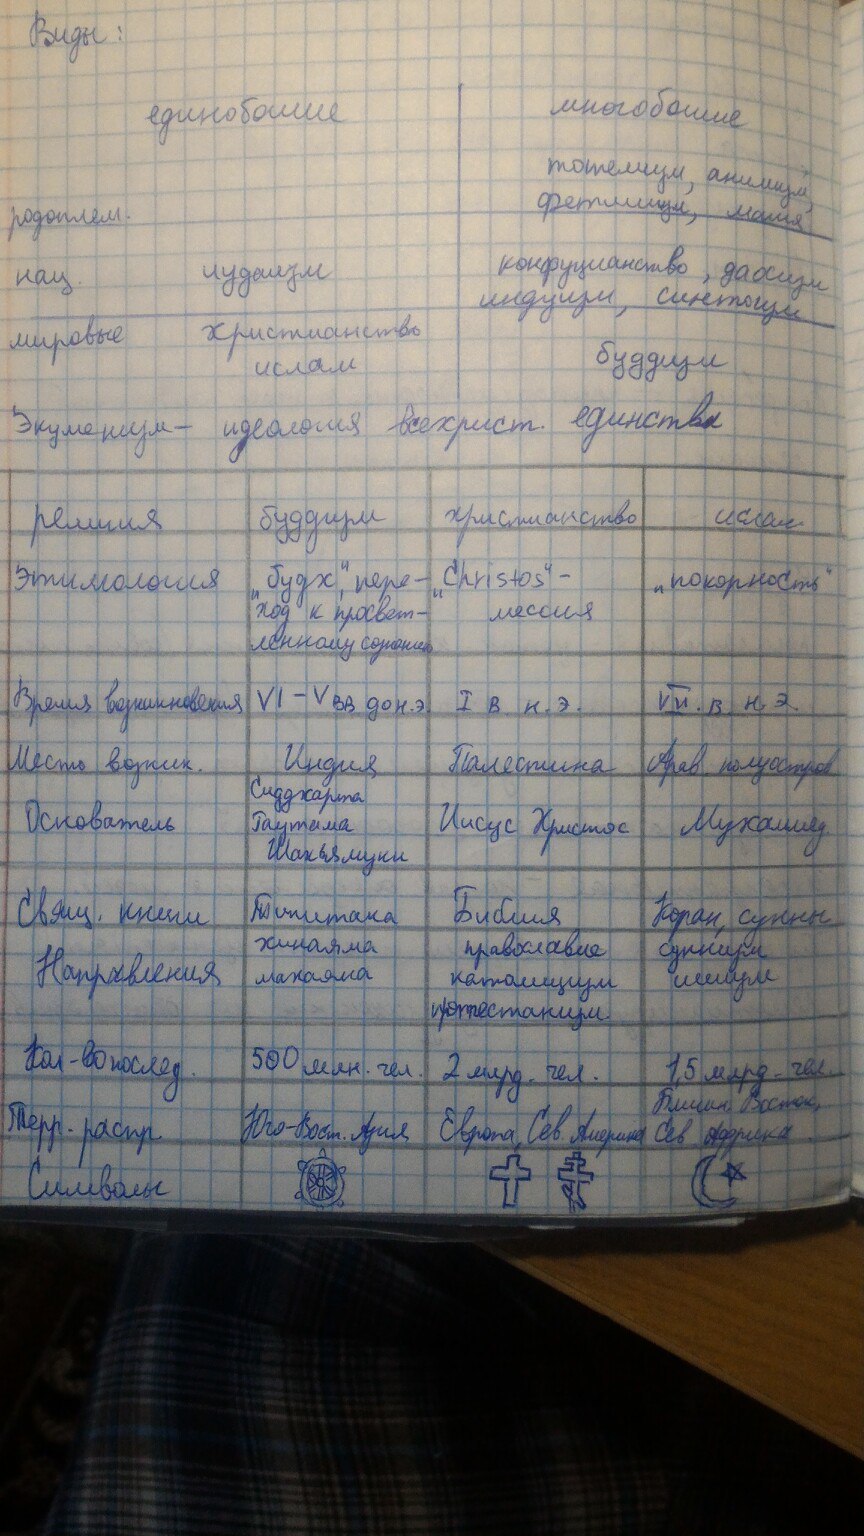 Виды:
единобожие многобожие
тотемизм, анимизм,
родоплем. фетишизм, магия
нац. иудаизм конфуцианство, даосизм
индуизм, синтоизм
мировые христианство буддизм
ислам
Экуменизм – идеология всехрист. единства
религия буддизм христианство ислам
Этимология „будх“, пере- „Christos“ - „покорность“
ход к просвет- мессия
ленному сознанию
Время возникновения VI – V вв до н.э. I в. н. э. VII. в. н. э.
Место возник. Индия Палестина Арав. полуостров
Основатель Сиддхарта Иисус Христос Мухаммед
Гаутама
Шакьямуни
Свящ. книги Типитака Библия Коран, сунны
Направления хинаяма православие суннизм
махаяма католицизм шиизм
протестанизм
Кол-во послед. 500 млн. чел. 2 млрд. чел. 1,5 млрд. чел.
Терр. распр. Юго-Вост. Азия Европа, Сев Америка Ближн. Восток,
Сев Африка.
Символы